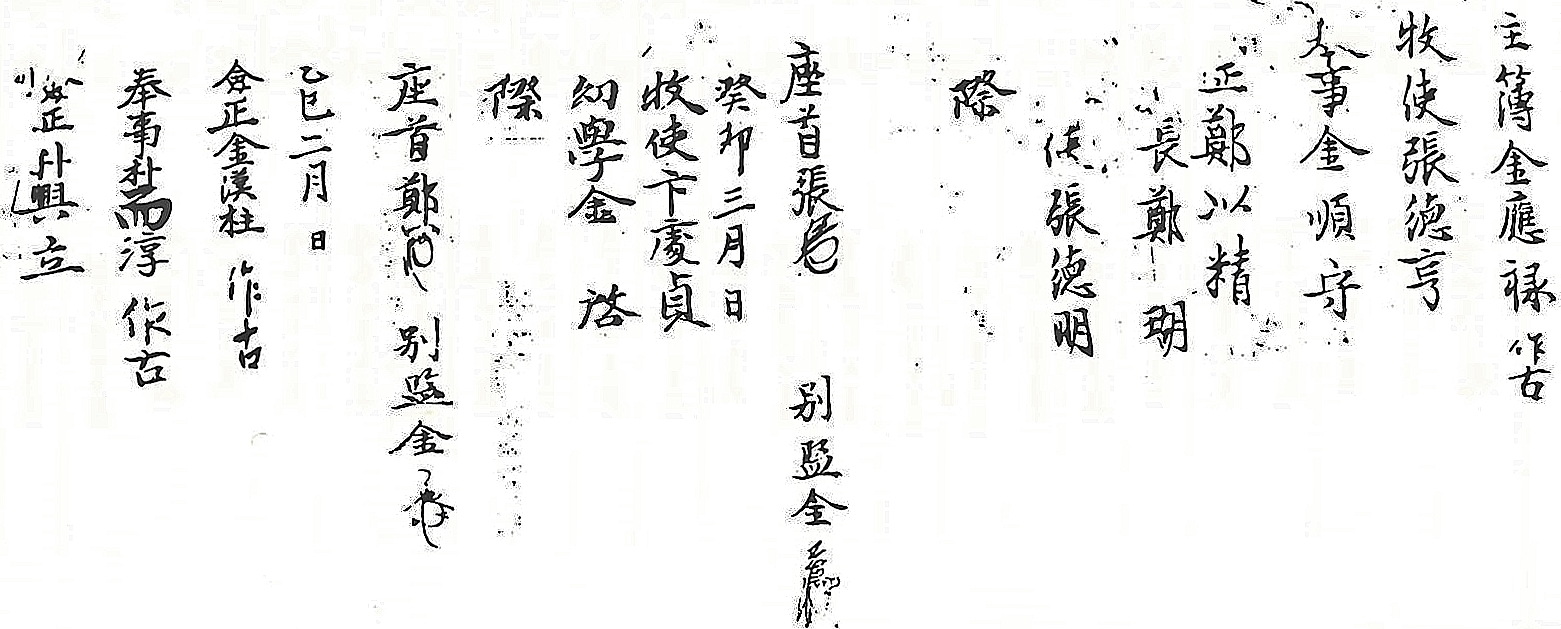 主簿金應祿 作古
牧使張德亨
奉事金順守
正鄭以精
長鄭 明
使張德明
際
座首張 別監金
癸卯三月日
牧使卞慶貞
幼學金 啓
際
座首鄭 別監金
乙巳二月 日
僉正金漢柱 作古
奉事朴而淳 作古
正朴興立